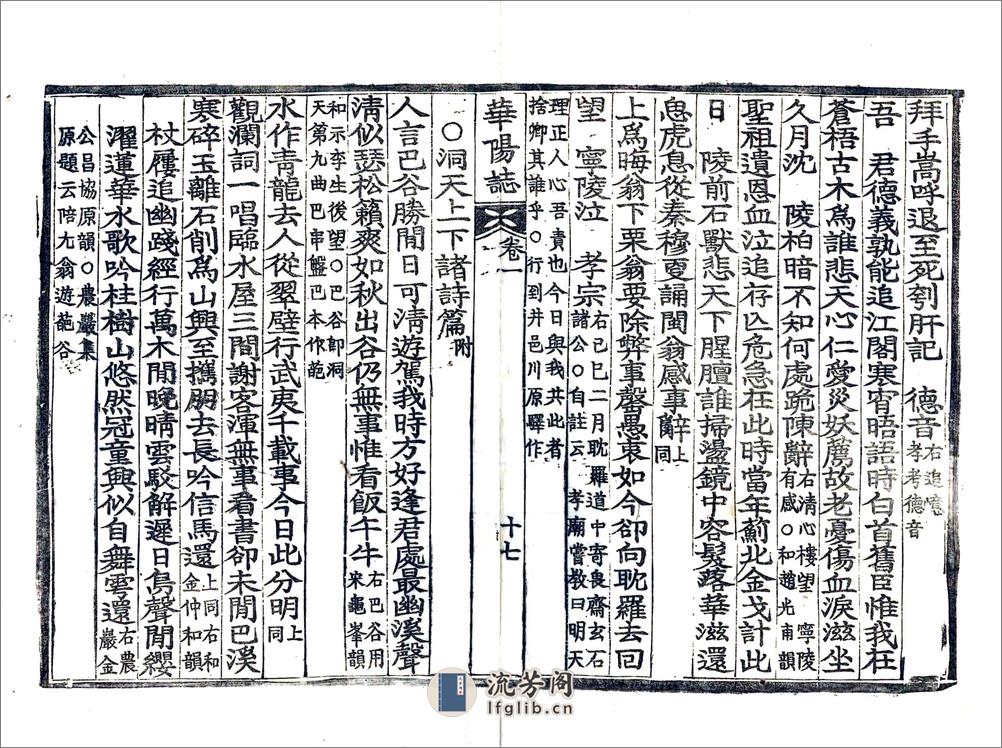 拜手嵩呼退至死刳肝記　德音右追憶孝考德音
吾　君德義孰能追江閣寒宵晤語時白首舊臣惟我在
蒼梧古木爲誰悲天心仁愛災妖薦故老憂傷血淚滋坐
久月沈　陵柏暗不知何處跪陳辭右清心樓望　寧陵有感○和趙光甫韻
聖祖遺恩血泣追存亾危急在此時當年薊北金戈計此
日　陵前石獸悲天下腥膻誰掃盪鏡中容髮落華滋還
息虎息從秦穆更誦閩翁感事辭上同
上爲晦翁下栗翁要除弊事罄愚衷如今卻向耽羅去回
望　寧陵泣　孝宗右己巳二月耽羅道中寄畏齋玄石諸公○自註云　孝廟嘗教曰明天
理正人心吾責也今日與我共此者捨卿其誰乎○行到井邑川原驛作
華陽誌　卷一　十七
○洞天上下諸詩篇附
人言巴谷勝閒日可淸遊駕我時方好逢君處最幽溪聲
淸似瑟松籟爽如秋出谷仍無事惟看飯午牛右巴谷用宋龜峯韻
和示李生後望○巴谷卽洞天第九曲巴串盤巴本作葩
水作靑龍去人從翠壁行武東千載事今日此分明上同
觀瀾詞一唱臨水屋三間謝客渾無事看書卻未閒巴溪
寒碎玉離石削爲山興至攜朋去長吟信馬還上同右和金仲和韻
杖屨追幽踐經行萬木閒晚晴雲駁解遲日鳥聲閒纓
濯蓮華水歌吟桂樹山悠然冠童興似自舞雩還右農巖金
公昌協原韻○農巖集原題云陪尤翁遊葩谷
流芳阁
lfglib.cn